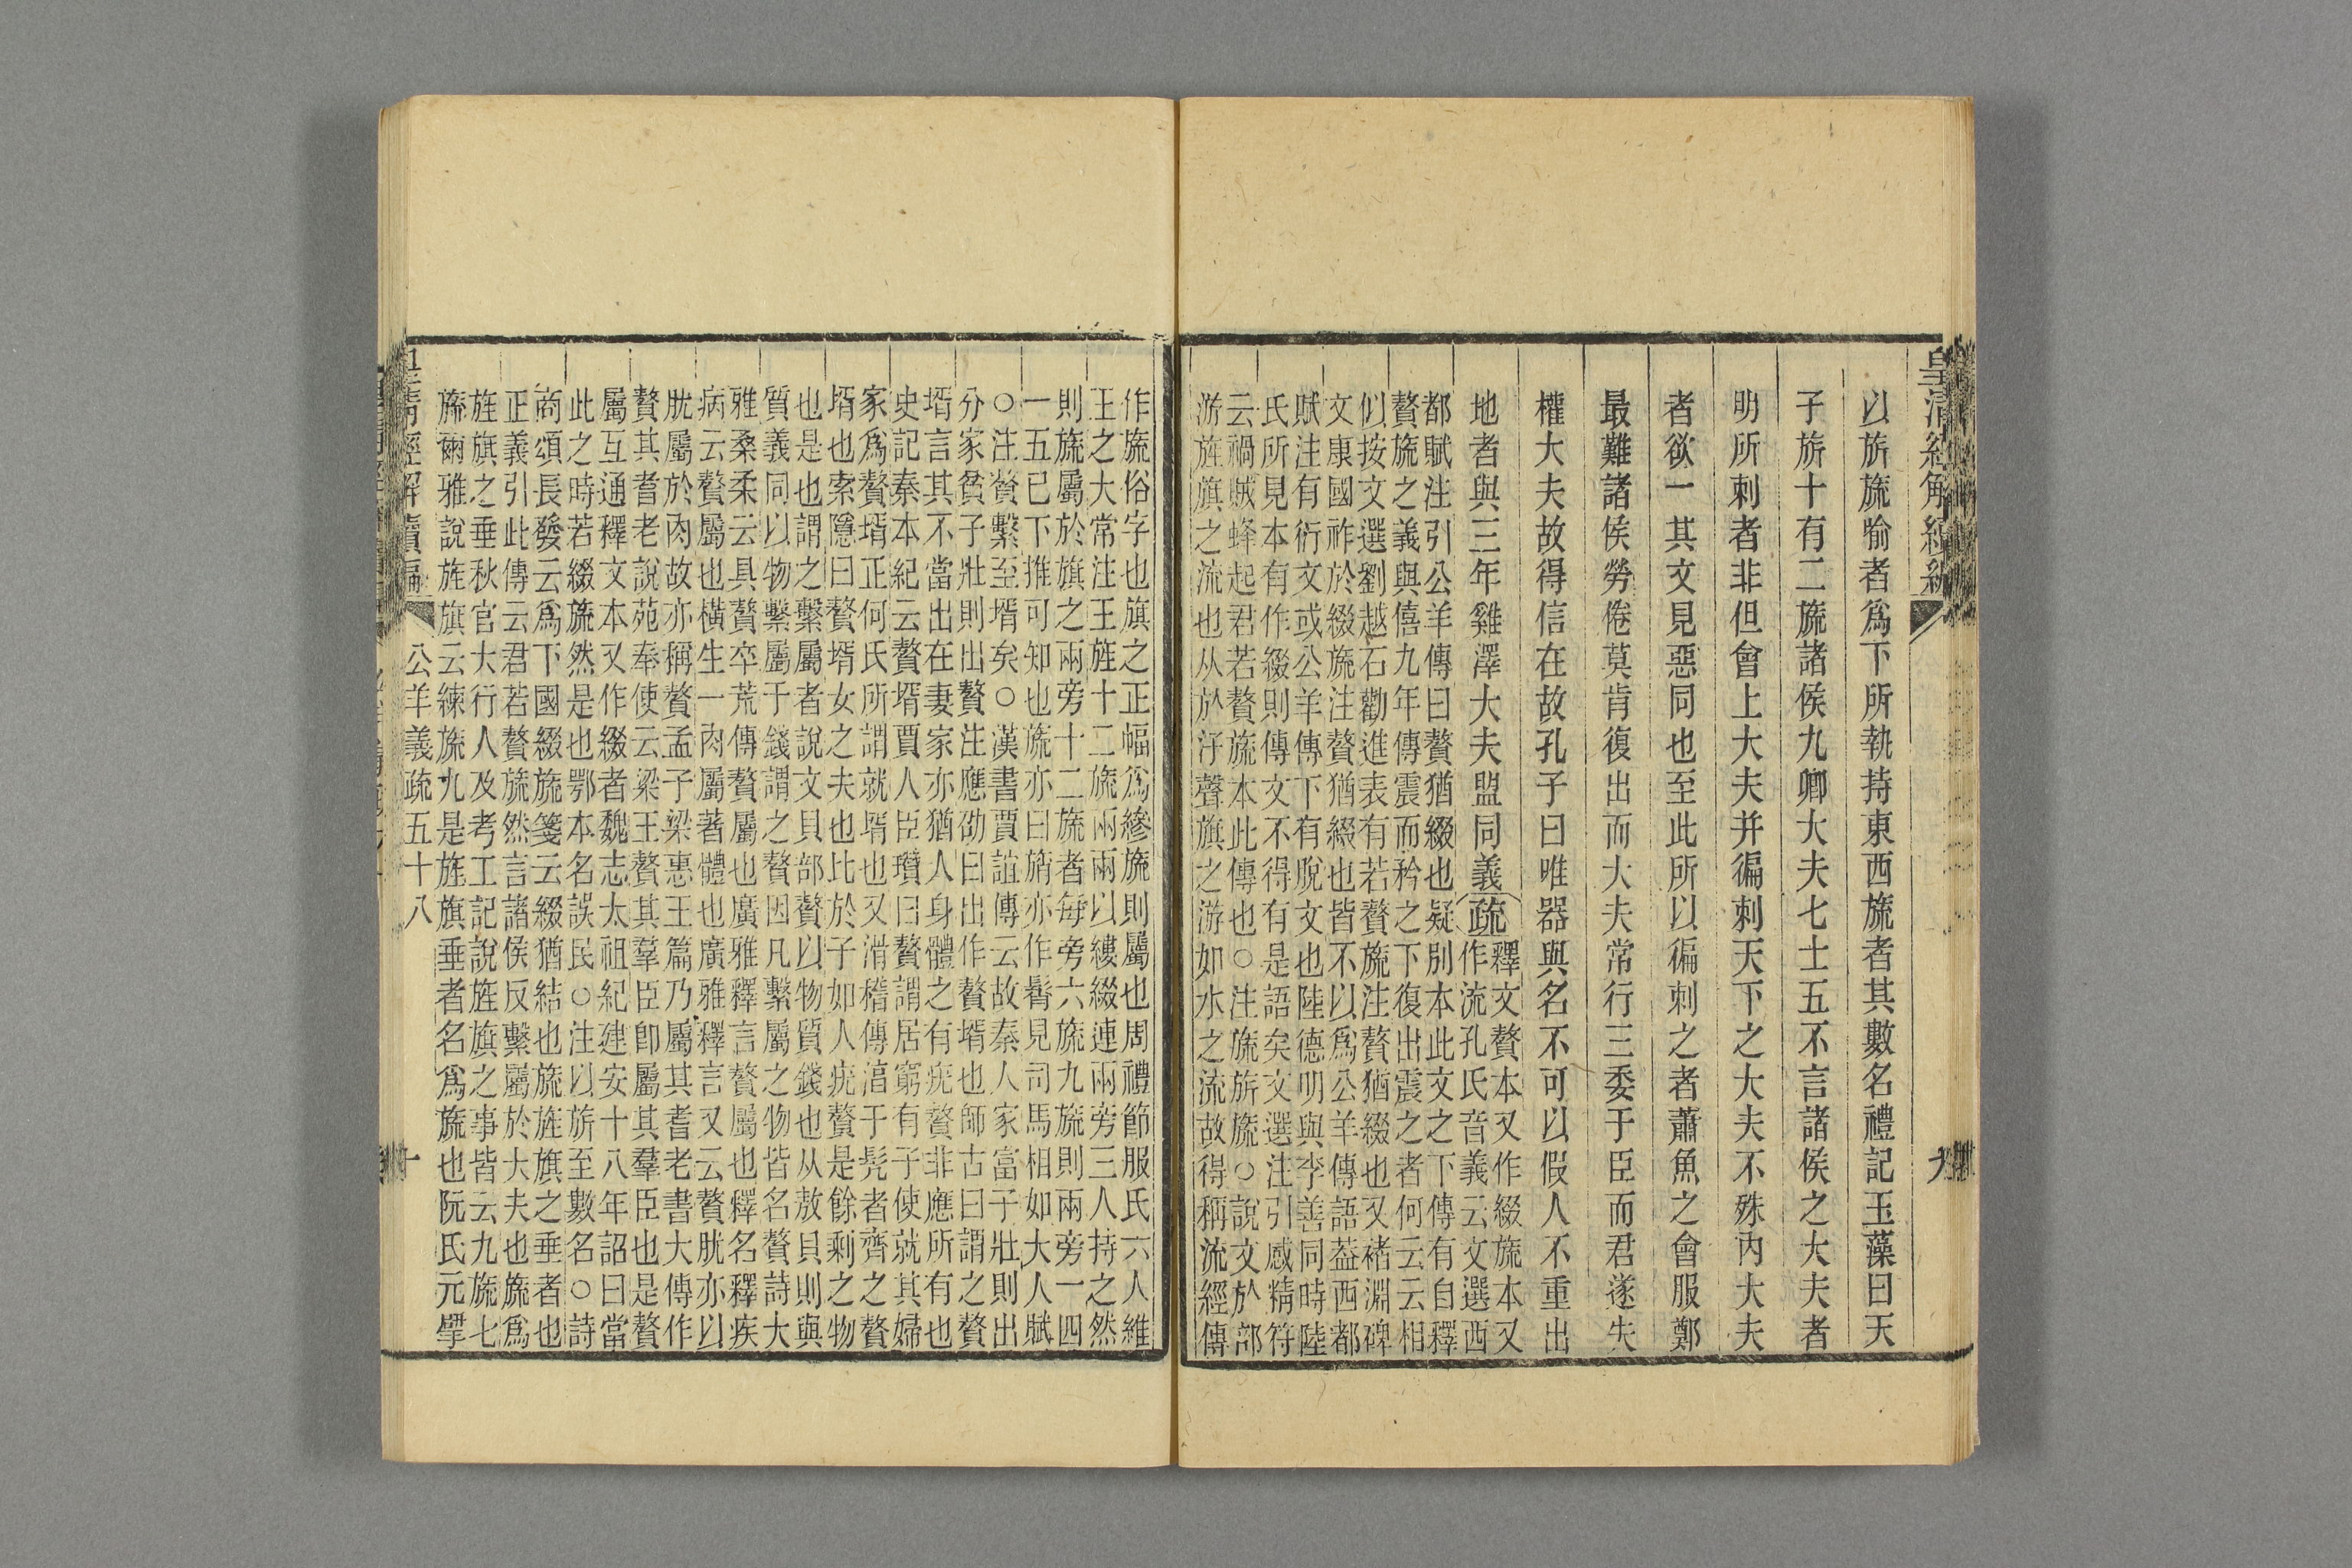 皇清經解續編
九
以旂旒喻者爲下所執持東西旒者其數名禮記玉藻曰天
子旂十有二旒諸侯九卿大夫七士五不言諸侯之大夫者
明所刺者非但會上大夫并徧刺天下之大夫不殊內大夫
者欲一其文見惡同也至此所以徧刺之者蕭魚之會服鄭
最難諸侯勞倦莫肯復出而大夫常行三委于臣而君遂失
權大夫故得信在故孔子曰唯器與名不可以假人不重出
地者與三年雞澤大夫盟同義疏釋文贅本又作綴旒本又
作流孔氏音義云文選西
都賦注引公羊傳曰贅猶綴也疑別本此文之下傳有自釋
贅旒之義與僖九年傳震而矜之下復出震之者何云云相
似按文選劉越石勸進表有若贅旒注贅猶綴也又褚淵碑
文康國祚於綴旒注贅猶綴也皆不以爲公羊傳語葢西都
賦注有衍文或公羊傳下有脫文也陸德明與李善同時陸
氏所見本有作綴則傳文不得有是語矣文選注引感精符
云禍賊蜂起君若贅旒本此傳也○注旒旂旒○說文㫃部
游旌旗之流也从㫃汓聲旗之游如水之流故得稱流經傳
作旒俗字也旗之正幅爲縿旒則屬也周禮節服氏六人維
王之大常注王旌十二旒兩兩以縷綴連兩旁三人持之然
則旒屬於旗之兩旁十二旒者每旁六旒九旒則兩旁一四
一五已下推可知也旒亦曰旓亦作髾見司馬相如大人賦
○注贅繫至壻矣○漢書賈誼傳云故秦人家富子壯則出
分家貧子壯則出贅注應劭曰出作贅壻也師古曰謂之贅
壻言其不當出在妻家亦猶人身體之有疣贅非應所有也
史記秦本紀云贅壻賈人臣瓚曰贅謂居窮有子使就其婦
家爲贅壻正何氏所謂就壻也又滑稽傳湻于髡者齊之贅
壻也索隱曰贅壻女之夫也比於子如人疣贅是餘剩之物
也是也謂之繫屬者說文貝部贅以物質錢也从敖貝則與
質義同以物繫屬于錢謂之贅因凡繫屬之物皆名贅詩大
雅桑柔云具贅卒荒傳贅屬也廣雅釋言贅屬也釋名釋疾
病云贅屬也橫生一肉屬著體也廣雅釋言又云贅肬亦以
肬屬於肉故亦稱贅孟子梁惠王篇乃屬其耆老書大傳作
贅其耆老說苑奉使云梁王贅其羣臣卽屬其羣臣也是贅
屬互通釋文本又作綴者魏志太祖紀建安十八年詔曰當
此之時若綴旒然是也鄂本名誤民○注以旂至數名○詩
商頌長發云爲下國綴旒箋云綴猶結也旒旌旗之垂者也
正義引此傳云君若贅旒然言諸侯反繫屬於大夫也旒爲
旌旗之垂秋官大行人及考工記說旌旗之事皆云九旒七
旒爾雅說旌旗云練旒九是旌旗垂者名爲旒也阮氏元㨂
皇清經解續編
公羊義疏五十八
十